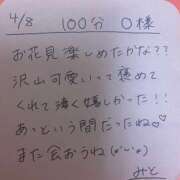 4/8 100分 O様
お花見楽しめたかな??
沢山可愛いって褒めて
くれて凄く嬉しかった!!
あっという間だったね♡
また会おうね(๑′ᴗ‵๑)
みと